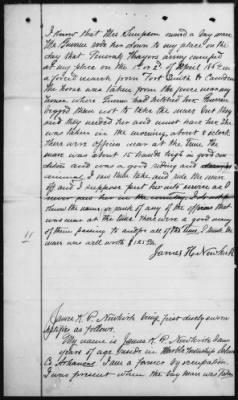 I know that Mrs Simpson owned a bay mare
The Simmon rode her down to my place on the
day that General Thayers army camped
at my place on the 1 or 2 of April 1864 on
a forced march from Fort Smith to Camden
The horse was taken from the fence near my
house where Simmon had hitched her Simmon
begged them not to take the mare but they
said they needed her and must have her She
was taken in the morning, about 8 oclock
there were officers near at the time the
mare was about 15 hands high in good con
dition and was a good riding and
animal. I saw them take and ride the mare
off and I suppose put her into service as I
never saw her in the country, I do not
know the name or rank of any of the officers that
was near at the time, there were a good many
of them passing to and fro all of the time, I think the
mare was well worth $125.00
James H. Newkirk
11
James H. P. Newkirk being first duly sworn
as follows.
My name is James H. P. Newkirk I am
years of age reside in Marble Township
Co Arkansas I am a farmer by occupation
I was present when the bay mare was taken